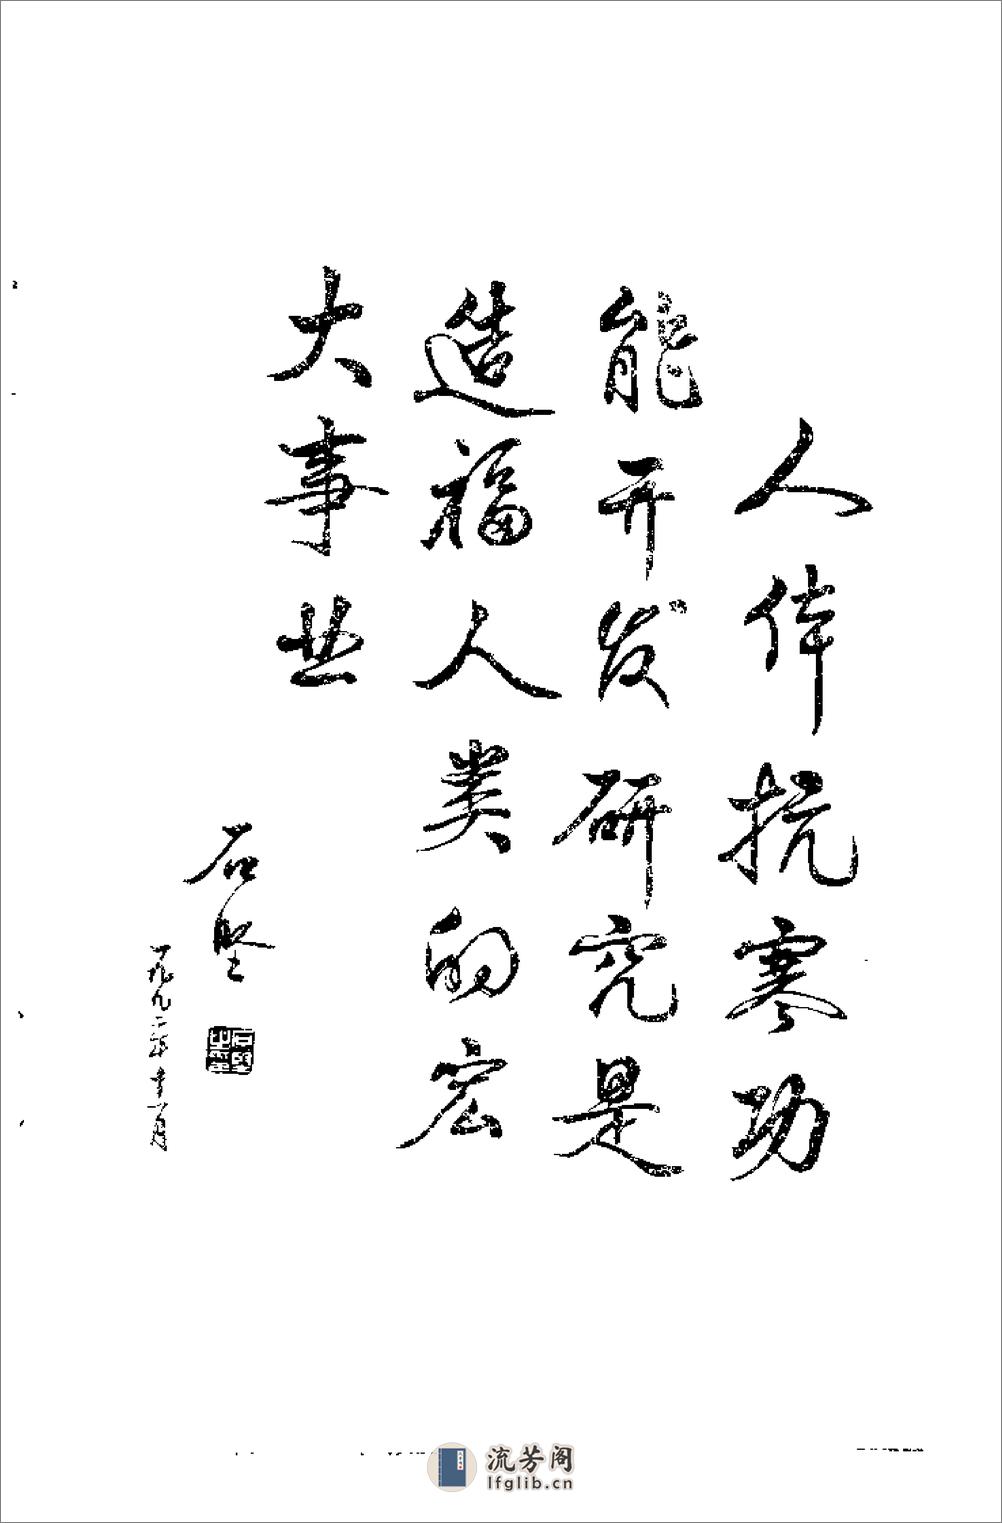 人体抗寒功
能开发研究是
造福人类的宏
大事业
石坚
一九九二年十一月
流芳阁
lfglib.cn